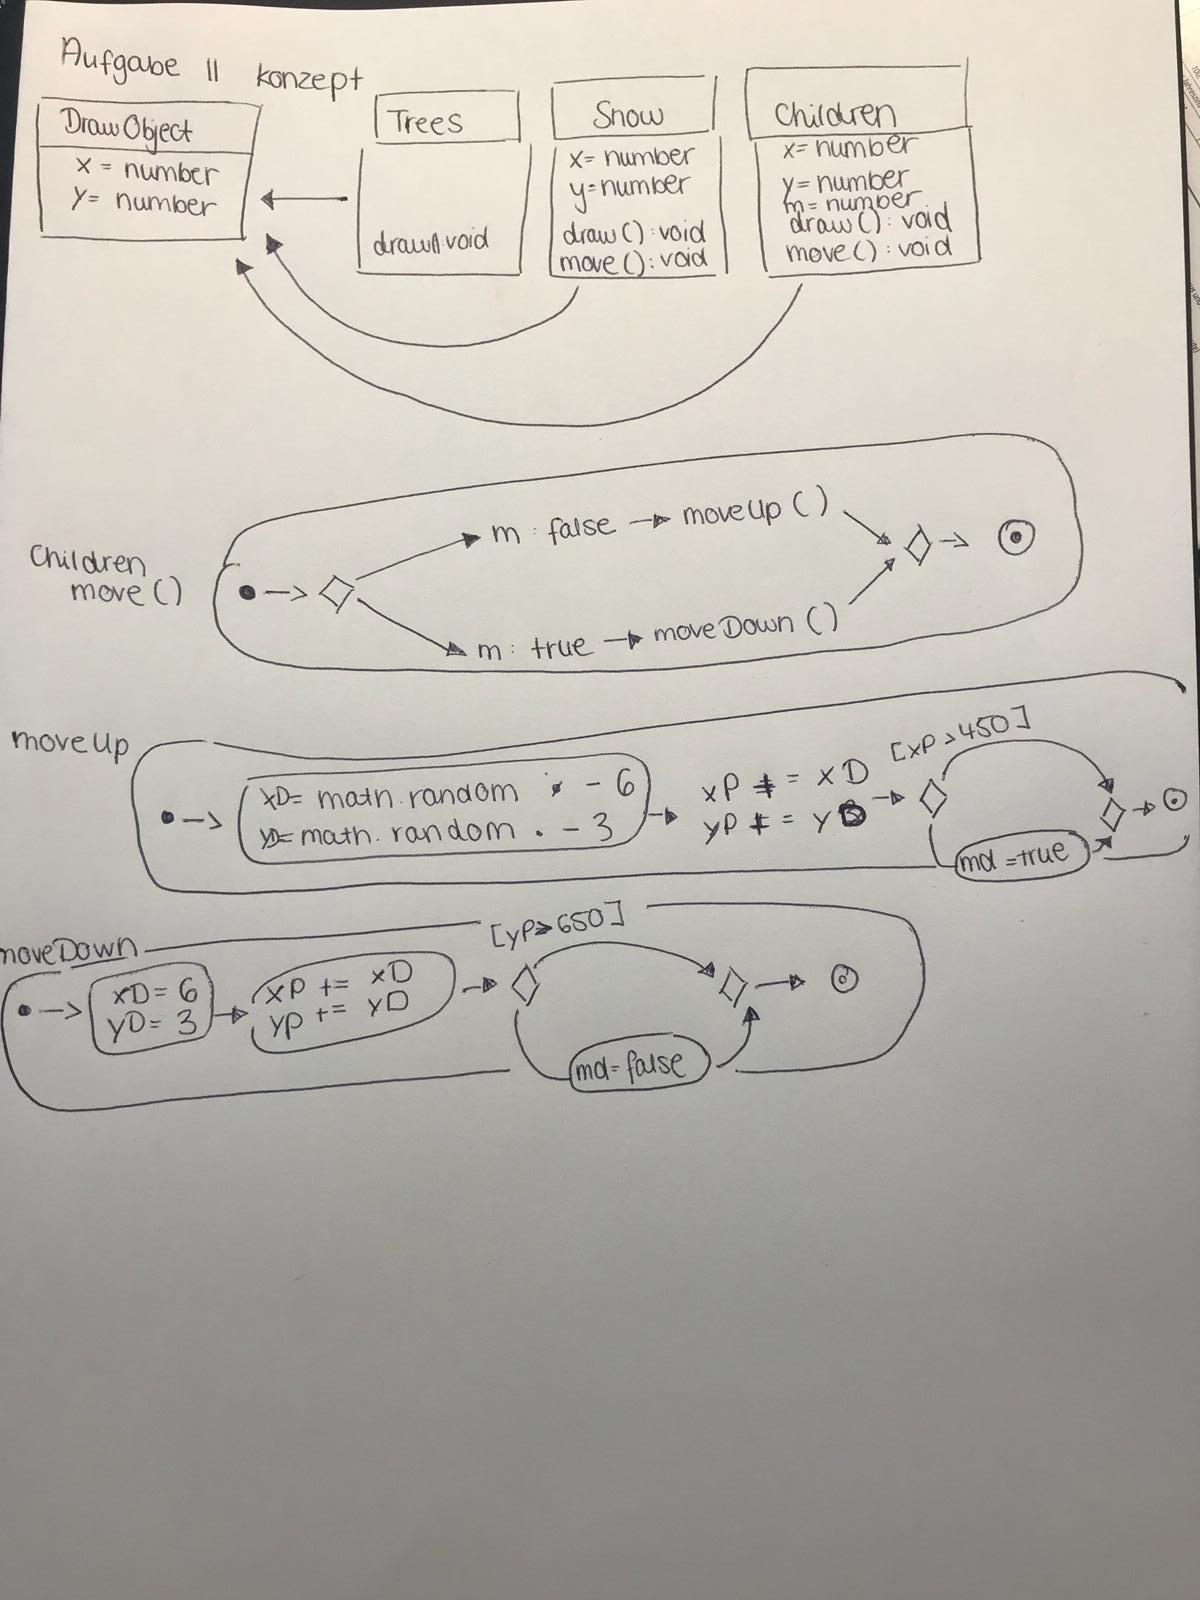 Aufgabe 11 konzept
DrawObject
x = number
y = number
Trees
draw():void
Snow
x= number
y=number
draw() : void
move() : void
Children
x= number
y= number
m= number
draw() : void
move() : void
Children
move ()
m : false → moveUp ()
m : true → moveDown ()
moveUp
xD= math.random · - 6
yD= math.random · - 3
xP += xD
yP += yD
[xP > 450]
md = true
moveDown
xD= 6
yD= 3
xP += xD
yP += yD
[yP > 650]
md= false